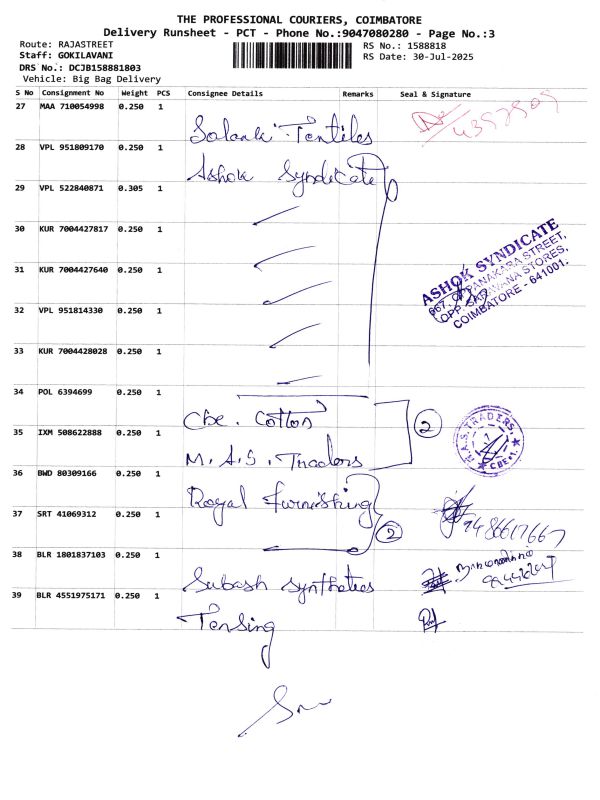 THE PROFESSIONAL COURIERS, COIMBATORE
Delivery Runsheet - PCT - Phone No.:9047080280 - Page No.:3
Route: RAJASTREET
Staff: GOKILAVANI
DRS No.: DCJB158881803
Vehicle: Big Bag Delivery
RS No.: 1588818
RS Date: 30-Jul-2025
S No Consignment No Weight PCS Consignee Details Remarks Seal & Signature
27 MAA 710054998 0.250 1
28 VPL 951809170 0.250 1 Ashok Syndicate
29 VPL 522840871 0.305 1
30 KUR 7004427817 0.250 1
31 KUR 7004427640 0.250 1
ASHOK SYNDICATE
667, OPPANAKARA STREET,
OPP. SARAVANA STORES,
COIMBATORE - 641001.
32 VPL 951814330 0.250 1
33 KUR 7004428028 0.250 1
34 POL 6394699 0.250 1 Cbe. Cotton 2
35 IXM 508622888 0.250 1 M. A. S. Traders
M.A.S. TRADERS, CBE-1.
36 BWD 80309166 0.250 1 Royal Furnishing
37 SRT 41069312 0.250 1 2 9486617667
38 BLR 1801837103 0.250 1 Subash Synthetics
39 BLR 4551975171 0.250 1 Tensing